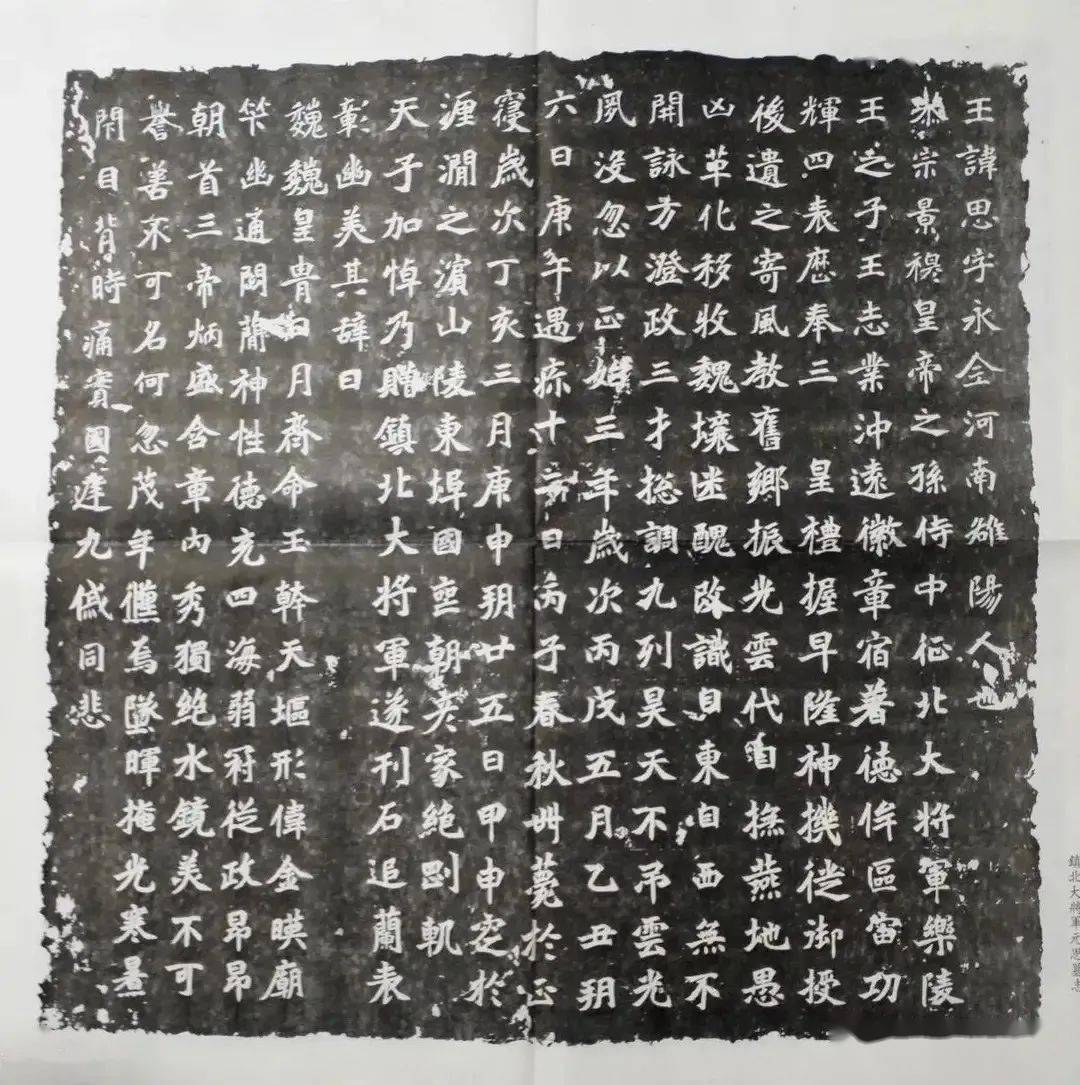 王諱思字永全河南雒陽人也
恭宗景穆皇帝之孫侍中征北大將軍樂陵
王之子王志業沖遠徽章宿著德侔區宙功
輝四表歷奉三 皇禮握早隆神機徙御授
後遺之寄風教舊鄉振光雲代自撫燕地愚
凶革化移牧魏壤迷醜改識自東自西無不
開詠方澄政三才揔調九列昊天不吊雲光
夙沒忽以正始三年歲次丙戌五月乙丑朔
六日庚午遇疹十二日丙子春秋卅薨於正
寢歲次丁亥三月庚申朔廿五日甲申窆於
瀍澗之濱山陵東埠國喪朝英家絕剛軌
天子加悼乃贈鎮北大將軍遂刊石追蘭表
彰幽美其辭曰
巍巍皇胄日月齊命玉幹天堀形偉金暎廟
竿幽通閟蘭神性德充四海弱冠從政昂昂
朝首三帝炳盛含章內秀獨絕水鏡美不可
譽善不可名何忽茂年儛焉墜暉掩光寒暑
閇目背時痛實國遑九慼同悲
鎮北大將軍元思墓志